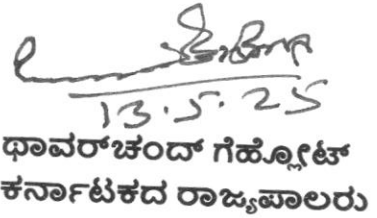 13.5.25
ಥಾವರ್‌ಚಂದ್ ಗೆಹ್ಲೋಟ್
ಕರ್ನಾಟಕದ ರಾಜ್ಯಪಾಲರು